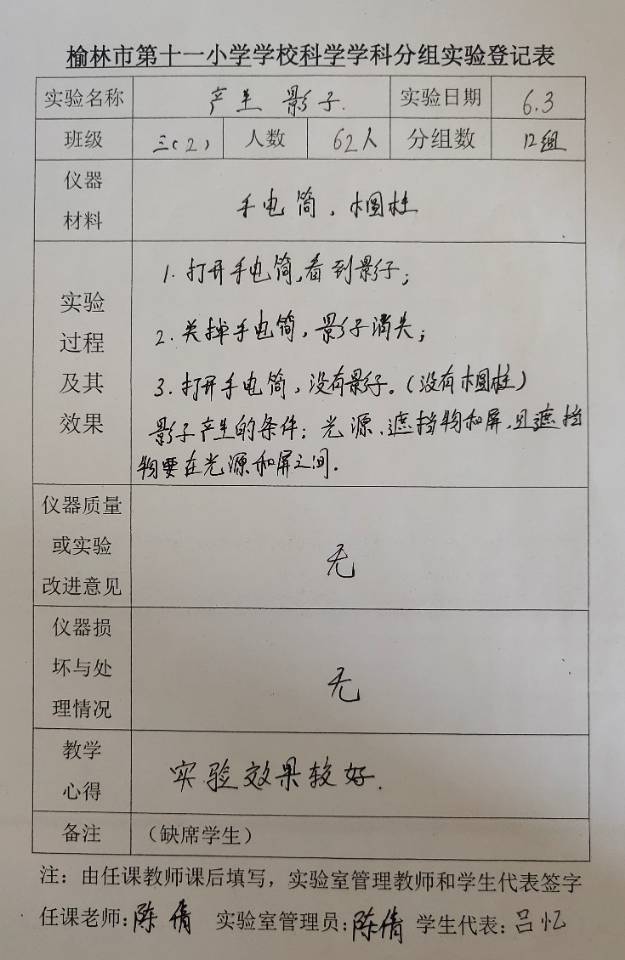 榆林市第十一小学学校科学学科分组实验登记表
实验名称 产生 影子. 实验日期 6.3
班级 三(2) 人数 62人 分组数 12组
仪器
材料
手电筒，木圆柱
实验
过程
及其
效果
1. 打开手电筒,看到影子；
2. 关掉手电筒，影子消失；
3. 打开手电筒，没有影子。(没有木圆柱)
影子产生的条件：光源、遮挡物和屏,且遮挡
物要在光源和屏之间.
仪器质量
或实验
改进意见
无
仪器损
坏与处
理情况
无
教学
心得
实验效果较好.
备注 （缺席学生）
注：由任课教师课后填写，实验室管理教师和学生代表签字
任课老师:陈倩 实验室管理员:陈倩 学生代表:吕忆